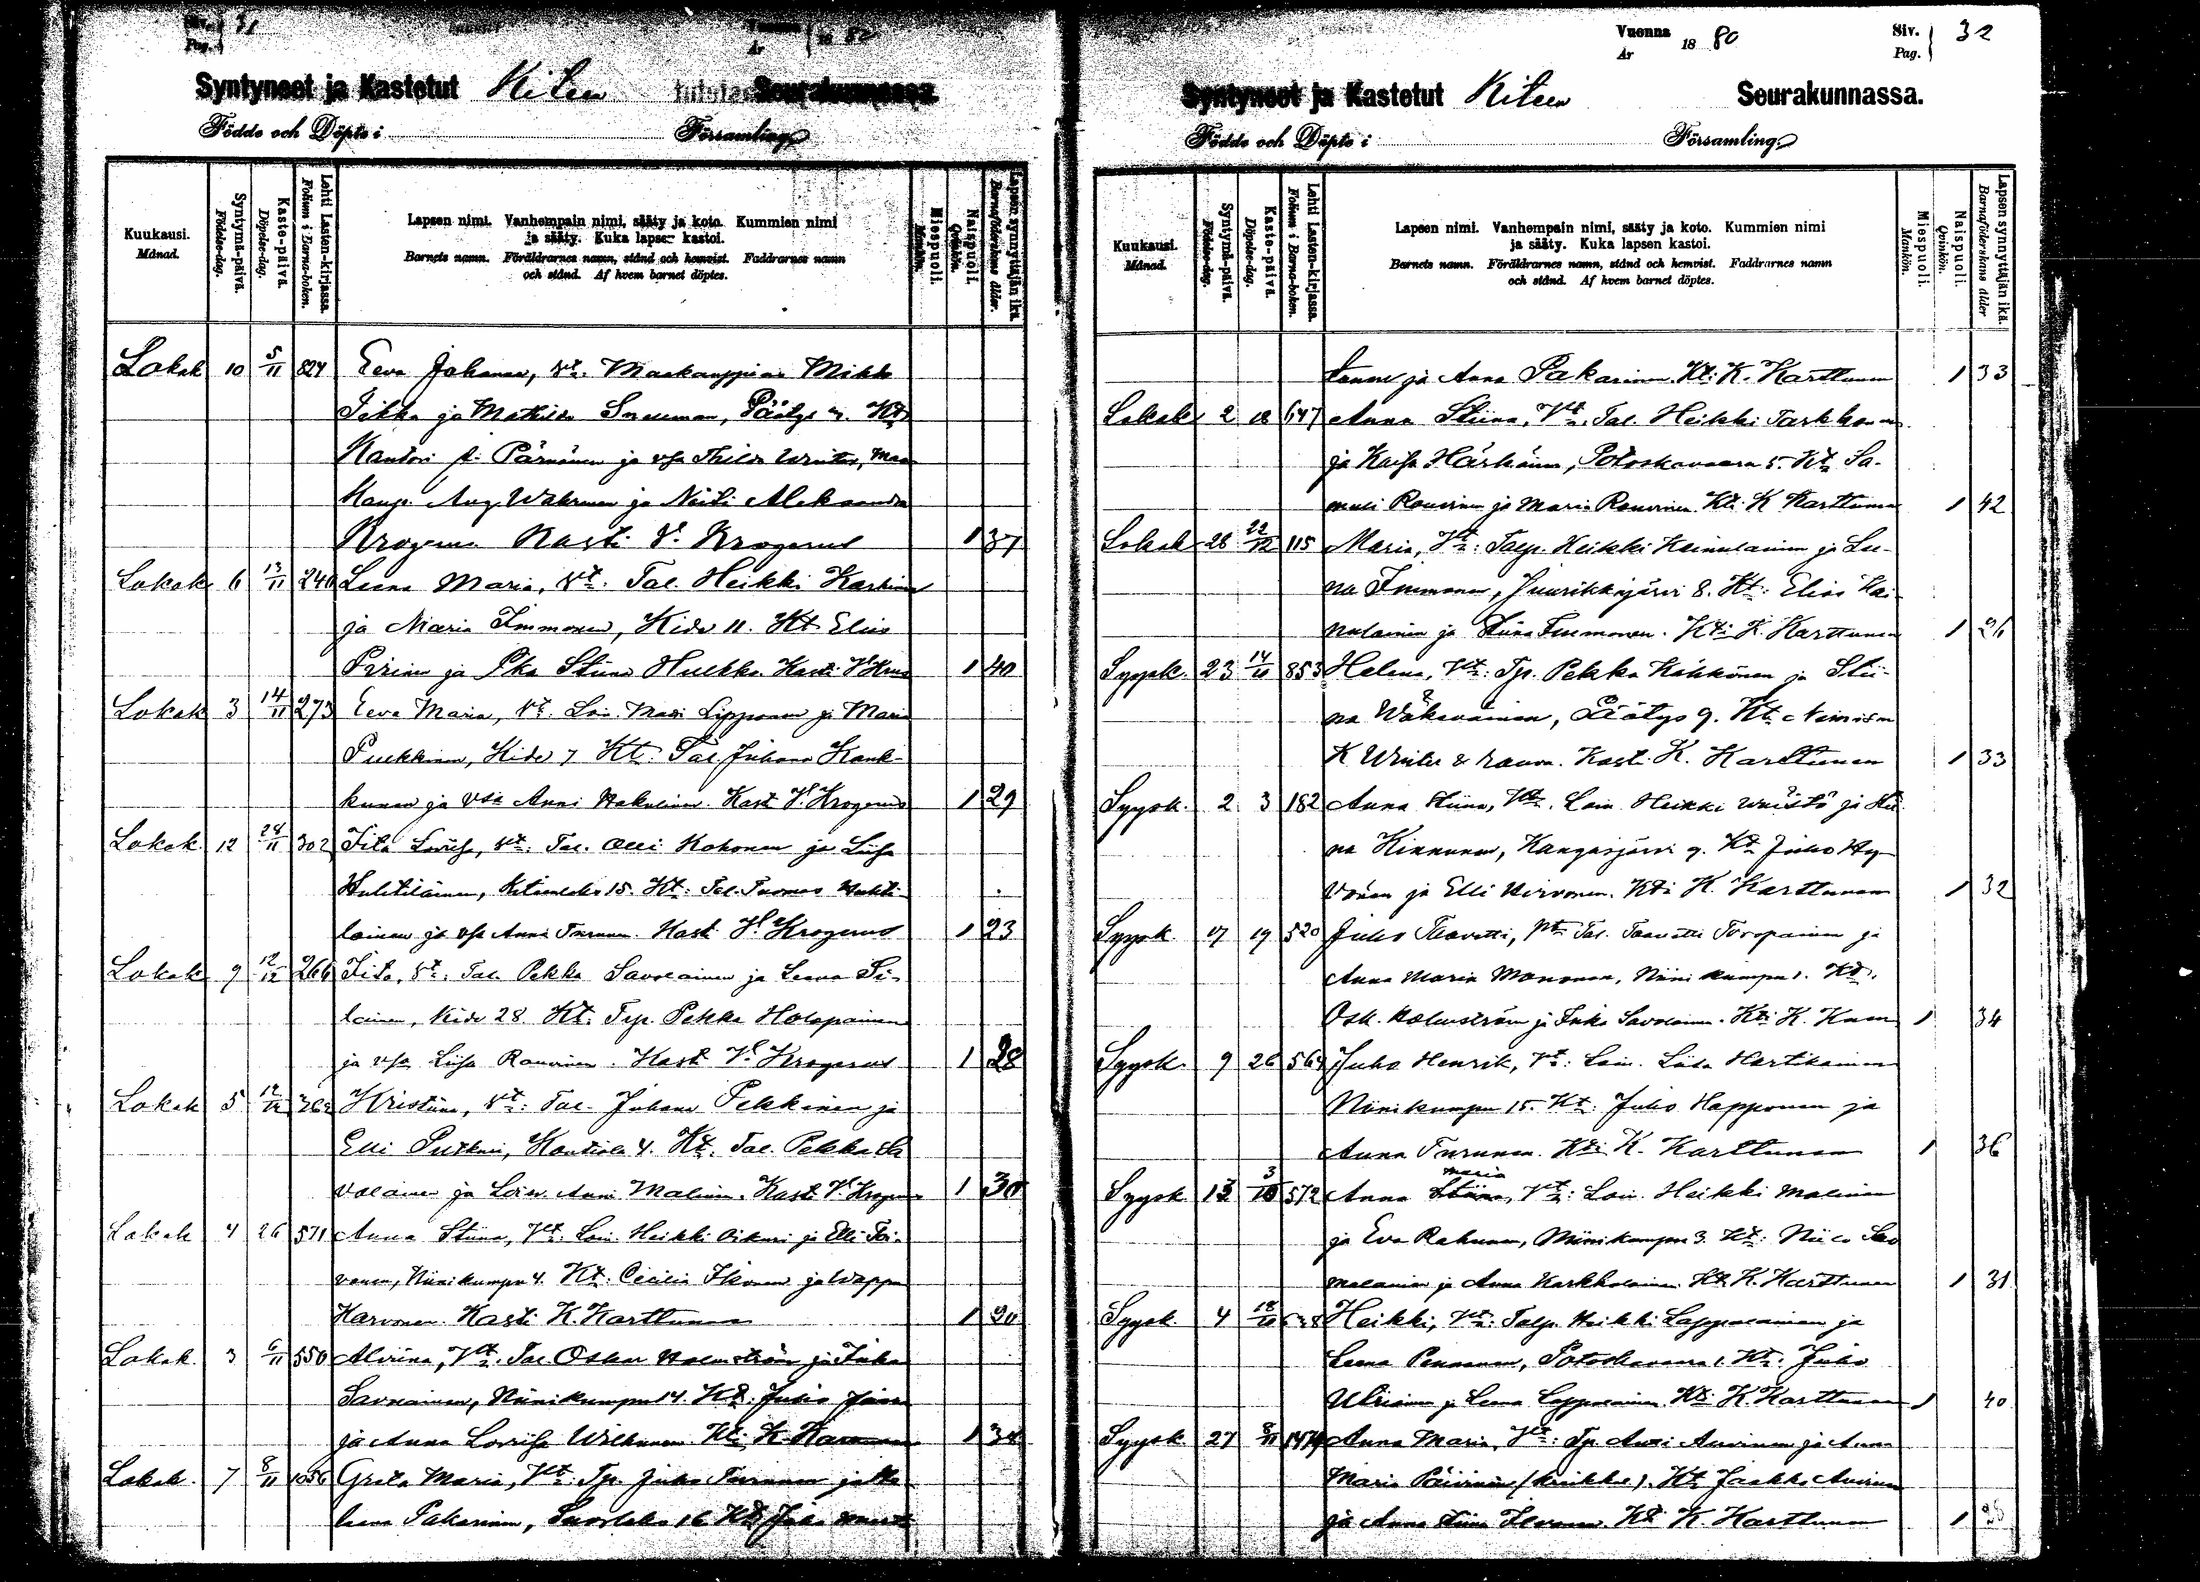 Siv. 31
Pag.
Vuonna
År 1880
Syntyneet ja Kastetut Kiteen Seurakunnassa.
Födde och Döpte i Församling
Kuukausi.
Månad.
Syntymä-päivä.
Födelse-dag.
Kaste-päivä.
Döpelse-dag.
Lehti Lasten-kirjassa.
Folium i Barna-boken.
Lapsen nimi. Vanhempain nimi, sääty ja koto. Kummien nimi
ja sääty. Kuka lapsen kastoi.
Barnets namn. Föräldrarnes namn, stånd och hemvist. Faddrarnes namn
och stånd. Af hvem barnet döptes.
Miespuoli.
Mankön.
Naispuoli.
Qvinkön.
Lapsen synnyttäjän ikä.
Barnaföderskans ålder.
Lokak 10 5/11 824 Eeva Johanna, Vt. Maakauppias Mikko
ja Mathilda Snellman, Päätye Kt.
Kanttori Pärnänen ja vsa Hilda Winter, Maa
Kaup. Aug. Wahrman ja Neiti Aleksandra
Krogerus Kasti V. Krogerus 1 37
Lokak 6 13/11 240 Leena Maria, Vt. Tal. Heikki
ja Maria Immonen, Kide 11. Kt. Elias
Pirinen ja Pka Stiina Hulkko. Kasti V. 1 40
Lokak 3 14/11 273 Eeva Maria, Vt. Lois. Matti Lipponen ja Maria
Pulkkinen, Kide 7 Kt. Tal. Juhana Kauk-
kunen ja Vsa Anni Hakulinen. Kast. V. Krogerus 1 29
Lokak. 12 28/11 302 Fita Loviisa, Vt. Tal. Olli Kokonen ja Liisa
Huhtilainen, Kiteenlaks 15. Kt. Tal. Tuomas Huhti-
lainen ja vsa Anna Turunen. Kast. V. Krogerus 1 23
Lokak 9 12/12 266 Fita, Vt. Tal. Pekka Savolainen ja Leena Si-
lainen, Kide 28 Kt. Pekka Holopainen
ja vsa Liisa Rouvinen. Kast. V. Krogerus 1 28
Lokak 5 12/12 Kristiina, Vt. Tal. Juhana Pekkinen ja
Elli Putkuri, Kontiola 4. Kt. Tal. Pekka Sa
volainen ja Anni Malinen. Kast. V. Krogerus 1 30
Lokak 4 26 571 Anna Stiina, Vt. Lois. Heikki Oikuri ja Elli Toi-
vonen, Niinikumpu 4. Kt. Cecilia Ikonen ja Wappu
Karvonen. Kasti K. Karttunen 1 20
Lokak. 3 6/11 550 Alviina, Vt. Tal. Oskar Holmström ja Inka
Savolainen, Niinikumpu 14. Kt. Juho
ja Anna Loviisa Wilkunen. Kti. K. 1 34
Lokak. 7 8/11 1056 Greta Maria, Vt. Tp. Juho Turunen ja He
leena Pakarinen, Suorlaks 16 Kt. Juho
Vuonna
År 1880
Siv. 32
Pag.
Syntyneet ja Kastetut Kiteen Seurakunnassa.
Födde och Döpte i Församling
Kuukausi.
Månad.
Syntymä-päivä.
Födelse-dag.
Kaste-päivä.
Döpelse-dag.
Lehti Lasten-kirjassa.
Folium i Barna-boken.
Lapsen nimi. Vanhempain nimi, sääty ja koto. Kummien nimi
ja sääty. Kuka lapsen kastoi.
Barnets namn. Föräldrarnes namn, stånd och hemvist. Faddrarnes namn
och stånd. Af hvem barnet döptes.
Miespuoli.
Mankön.
Naispuoli.
Qvinkön.
Lapsen synnyttäjän ikä.
Barnaföderskans ålder
ja Anna Pakarinen. Kti. K. Karttunen 1 33
Lokak 2 18 647 Anna Stiina, Vt. Tal. Heikki Tarkkonen
ja Kaisa Härkönen, Potoskavaara 5. Kt. Sa-
muli Rouvinen ja Maria Rouvinen. Kti. K Karttunen 1 42
Lokak 28 22/12 115 Maria, Vt. Talp. Heikki Kainulainen ja Lee-
na Immonen, Juurikkajärvi 8. Kt. Elias Kai-
nulainen ja Stiina Immonen. Kti. K. Karttunen 1 26
Syysk. 23 14/11 853 Helena, Vt. Tp. Pekka Kähkönen ja Stii-
na Wäkeväinen, Päätye 9. Kt.
K Winter & rouva. Kasti K. Karttunen 1 33
Syysk. 2 3 182 Anna Stiina, Vt. Lois. Heikki Wäistö ja Stii
na Kinnunen, Kangasjärvi 9. Kt. Juho Hy-
vönen ja Elli Hirvonen. Kti K. Karttunen 1 32
Syysk. 17 19 520 Juho Taavetti, Vt. Tal. Taavetti Toropainen ja
Anna Maria Mononen, Niinikumpu 1. Kt.
Osk. Holmström ja Inka Savolainen. Kti. K. 1 34
Syysk. 9 26 564 Juho Henrik, Vt. Lois. Liisa Hartikainen
Niinikumpu 15. Kt. Juho Happonen ja
Anna Turunen. Kti K. Karttunen 1 36
Maria
Syysk 13 3/10 572 Anna Stiina, Vt. Lois. Heikki Malinen
ja Eva Rahunen, Niinikumpu 3. Kt. Niilo
malainen ja Anna Karkkolainen. Kt. K. Karttunen 1 31
Syysk. 4 18 Heikki, Vt. Talp. Heikki Lappalainen ja
Leena Pennanen, Potoskavaara 1. Kt. Juho
ja Leena Lappalainen. Kt. K. Karttunen 1 40
Syysk. 27 8/11 Anna Maria, Vt. Tp. Antti Auvinen ja Anna
Maria Päivinen (Kruikka). Kt. Jaakko Auvinen
ja Anna Stiina. Kt. K. Karttunen 1